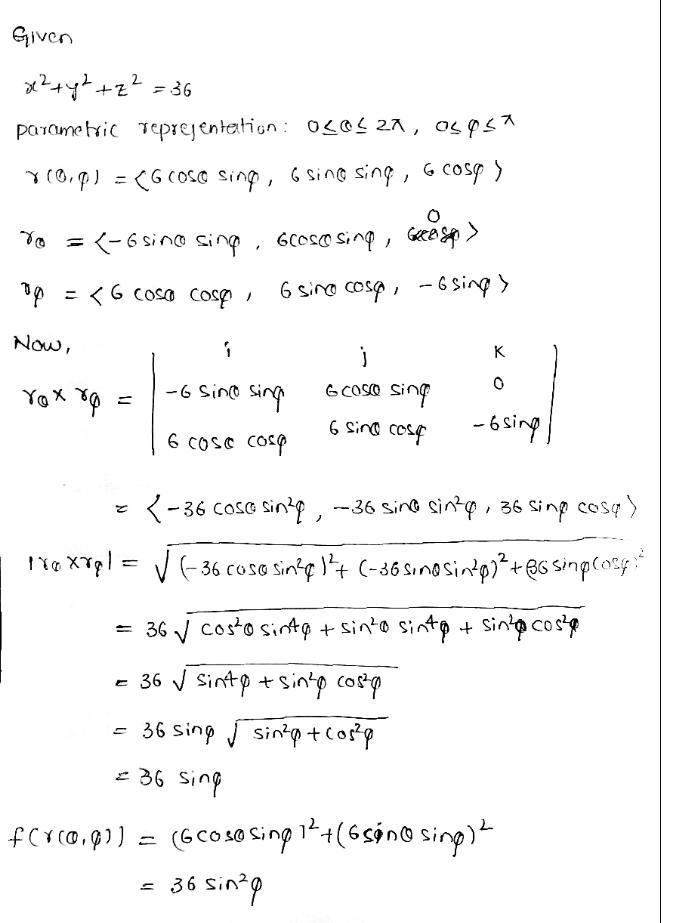 Given
x²+y²+z² = 36
parametric representation: 0≤θ≤2π, 0≤φ≤π
r(θ,φ) = <6 cosθ sinφ, 6 sinθ sinφ, 6 cosφ>
rθ = <-6 sinθ sinφ, 6cosθ sinφ, 0>
rφ = <6 cosθ cosφ, 6 sinθ cosφ, -6 sinφ>
Now,
i j K
rθ × rφ = | -6 sinθ sinφ 6 cosθ sinφ 0 |
6 cosθ cosφ 6 sinθ cosφ -6 sinφ
= <-36 cosθ sin²φ, -36 sinθ sin²φ, 36 sinφ cosφ>
|rθ × rφ| = √((-36 cosθ sin²φ)² + (-36 sinθ sin²φ)² + (36 sinφ cosφ)²
= 36 √(cos²θ sin4φ + sin²θ sin4φ + sin²φ cos²φ)
= 36 √(sin4φ + sin²φ cos²φ)
= 36 sinφ √(sin²φ + cos²φ)
= 36 sinφ
f(r(θ,φ)) = (6 cosθ sinφ)² + (6 sinθ sinφ)²
= 36 sin²φ